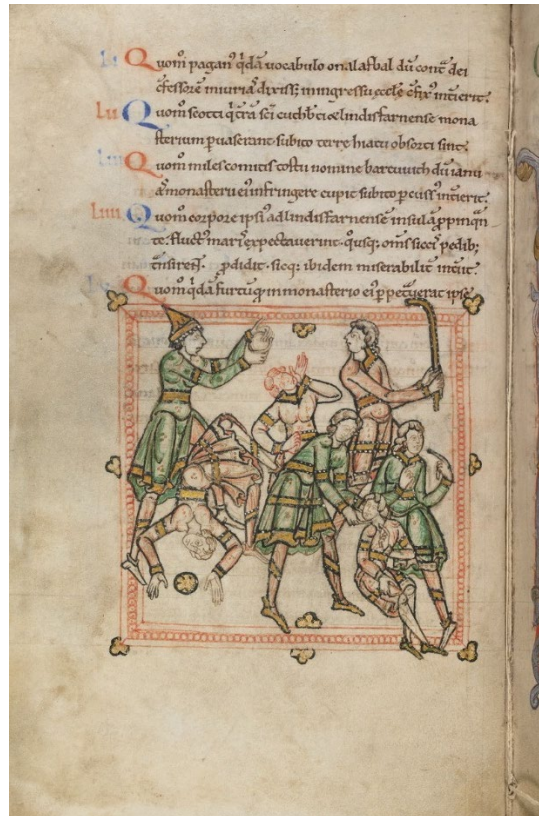 Li Quom̅ pagan⁹ q̅dā uocabulo onalafbal dū cont̅ dei
c̅fessorē iniuriā dixiss; in ingressu eccl̅e c̅fix⁹ int̅ierit.
Lii Quom̅ scotti sc̅i cuthb̅ti lindisfarnense mona
sterium puaserant subito terre hiatu obsorti sint.
Liii Quom̅ miles comitis nomine barcuuich dū ianu
ā monasterii ei⁹ infringere cupit subito pcuss⁹ int̅ierit.
Liiii Quom̅ corpore ipsi⁹ ad lindisfarnense insulā p̅pinqn
te. fluct⁹ mari̅ expectauerint. om̅s siccis pedib;
t̅nsirēt. p̅didit. sicq; ibidem miserabilit̅ int̅iit.
Quom̅ q̅dā furtū q̅ in monasterio ei⁹ ppetuerat ipse